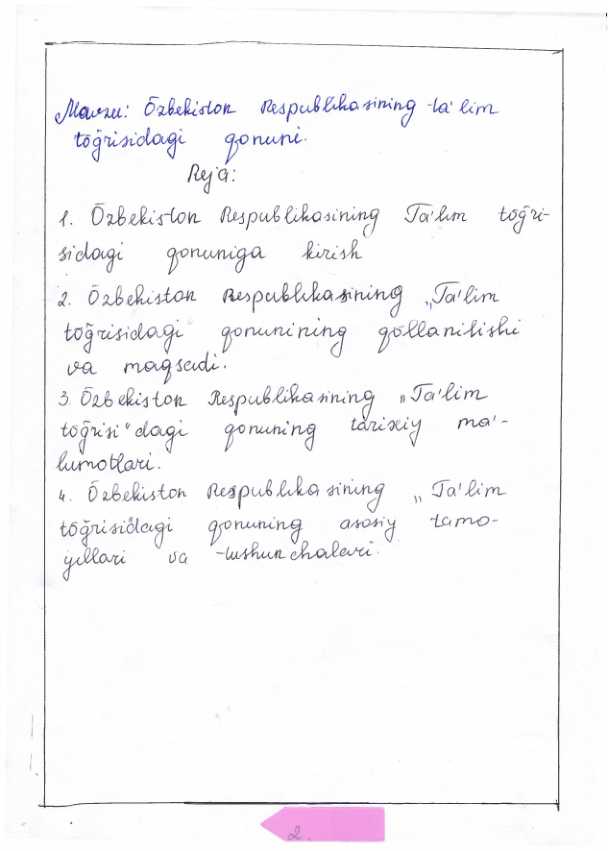 Mavzu: Õzbekiston Respublikasining ta'lim
tõğrisidagi qonuni.
Reja:
1. Õzbekiston Respublikasining Ta'lim tõğri-
sidagi qonuniga kirish
2. Õzbekiston Respublikasining „Ta'lim
tõğrisidagi" qonunining qõllanilishi
va maqsadi.
3 Õzbekiston Respublikasining „Ta'lim
tõğrisi"dagi qonuning tarixiy ma'-
lumotlari.
4. Õzbekiston Respublikasining „Ta'lim
tõğrisidagi qonuning asosiy tamo-
yillari va tushunchalari.
2.